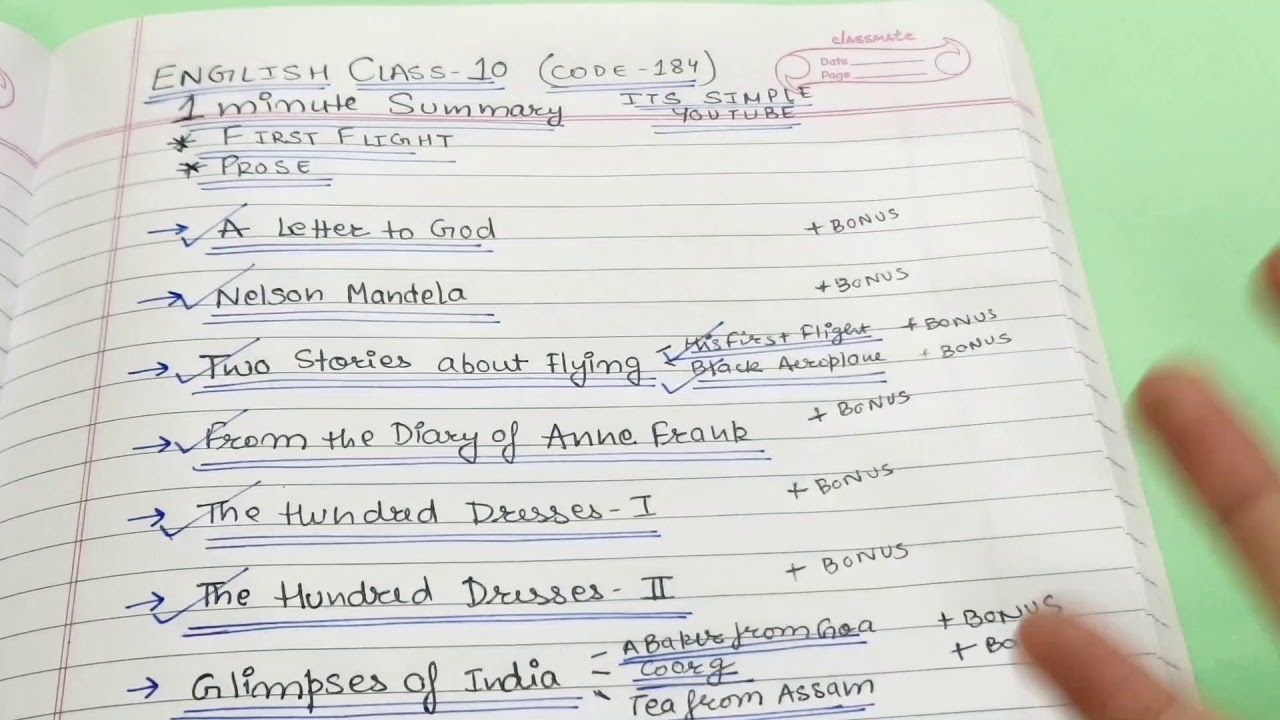 classmate
Date
Page
ENGLISH CLASS-10 (CODE-184)
1 minute Summary ITS SIMPLE
YOUTUBE
* FIRST FLIGHT
* PROSE
→ A Letter to God + BONUS
→ Nelson Mandela + BONUS
→ Two Stories about Flying - His First Flight + BONUS
Black Aeroplane + BONUS
→ From the Diary of Anne Frank + BONUS
→ The Hundred Dresses - I + BONUS
→ The Hundred Dresses - II + BONUS
→ Glimpses of India - A Baker from Goa + BONUS
- Coorg + BO
- Tea from Assam